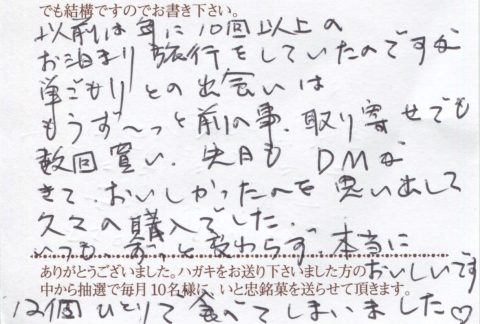 でも結構ですのでお書き下さい。
以前は年に10回以上の
お泊まり旅行をしていたのですが
巣ごもりとの出会いは
もうず〜っと前の事、取り寄せでも
数回買い、先日も DMが
きて、おいしかったのを思い出して
久々の購入でした。
いつも、ずっと変わらず、本当に
おいしいです
ありがとうございました。ハガキをお送り下さいました方の
中から抽選で毎月10名様に、いと忠銘菓を送らせて頂きます。
12個 ひとりで食べてしまいました♡